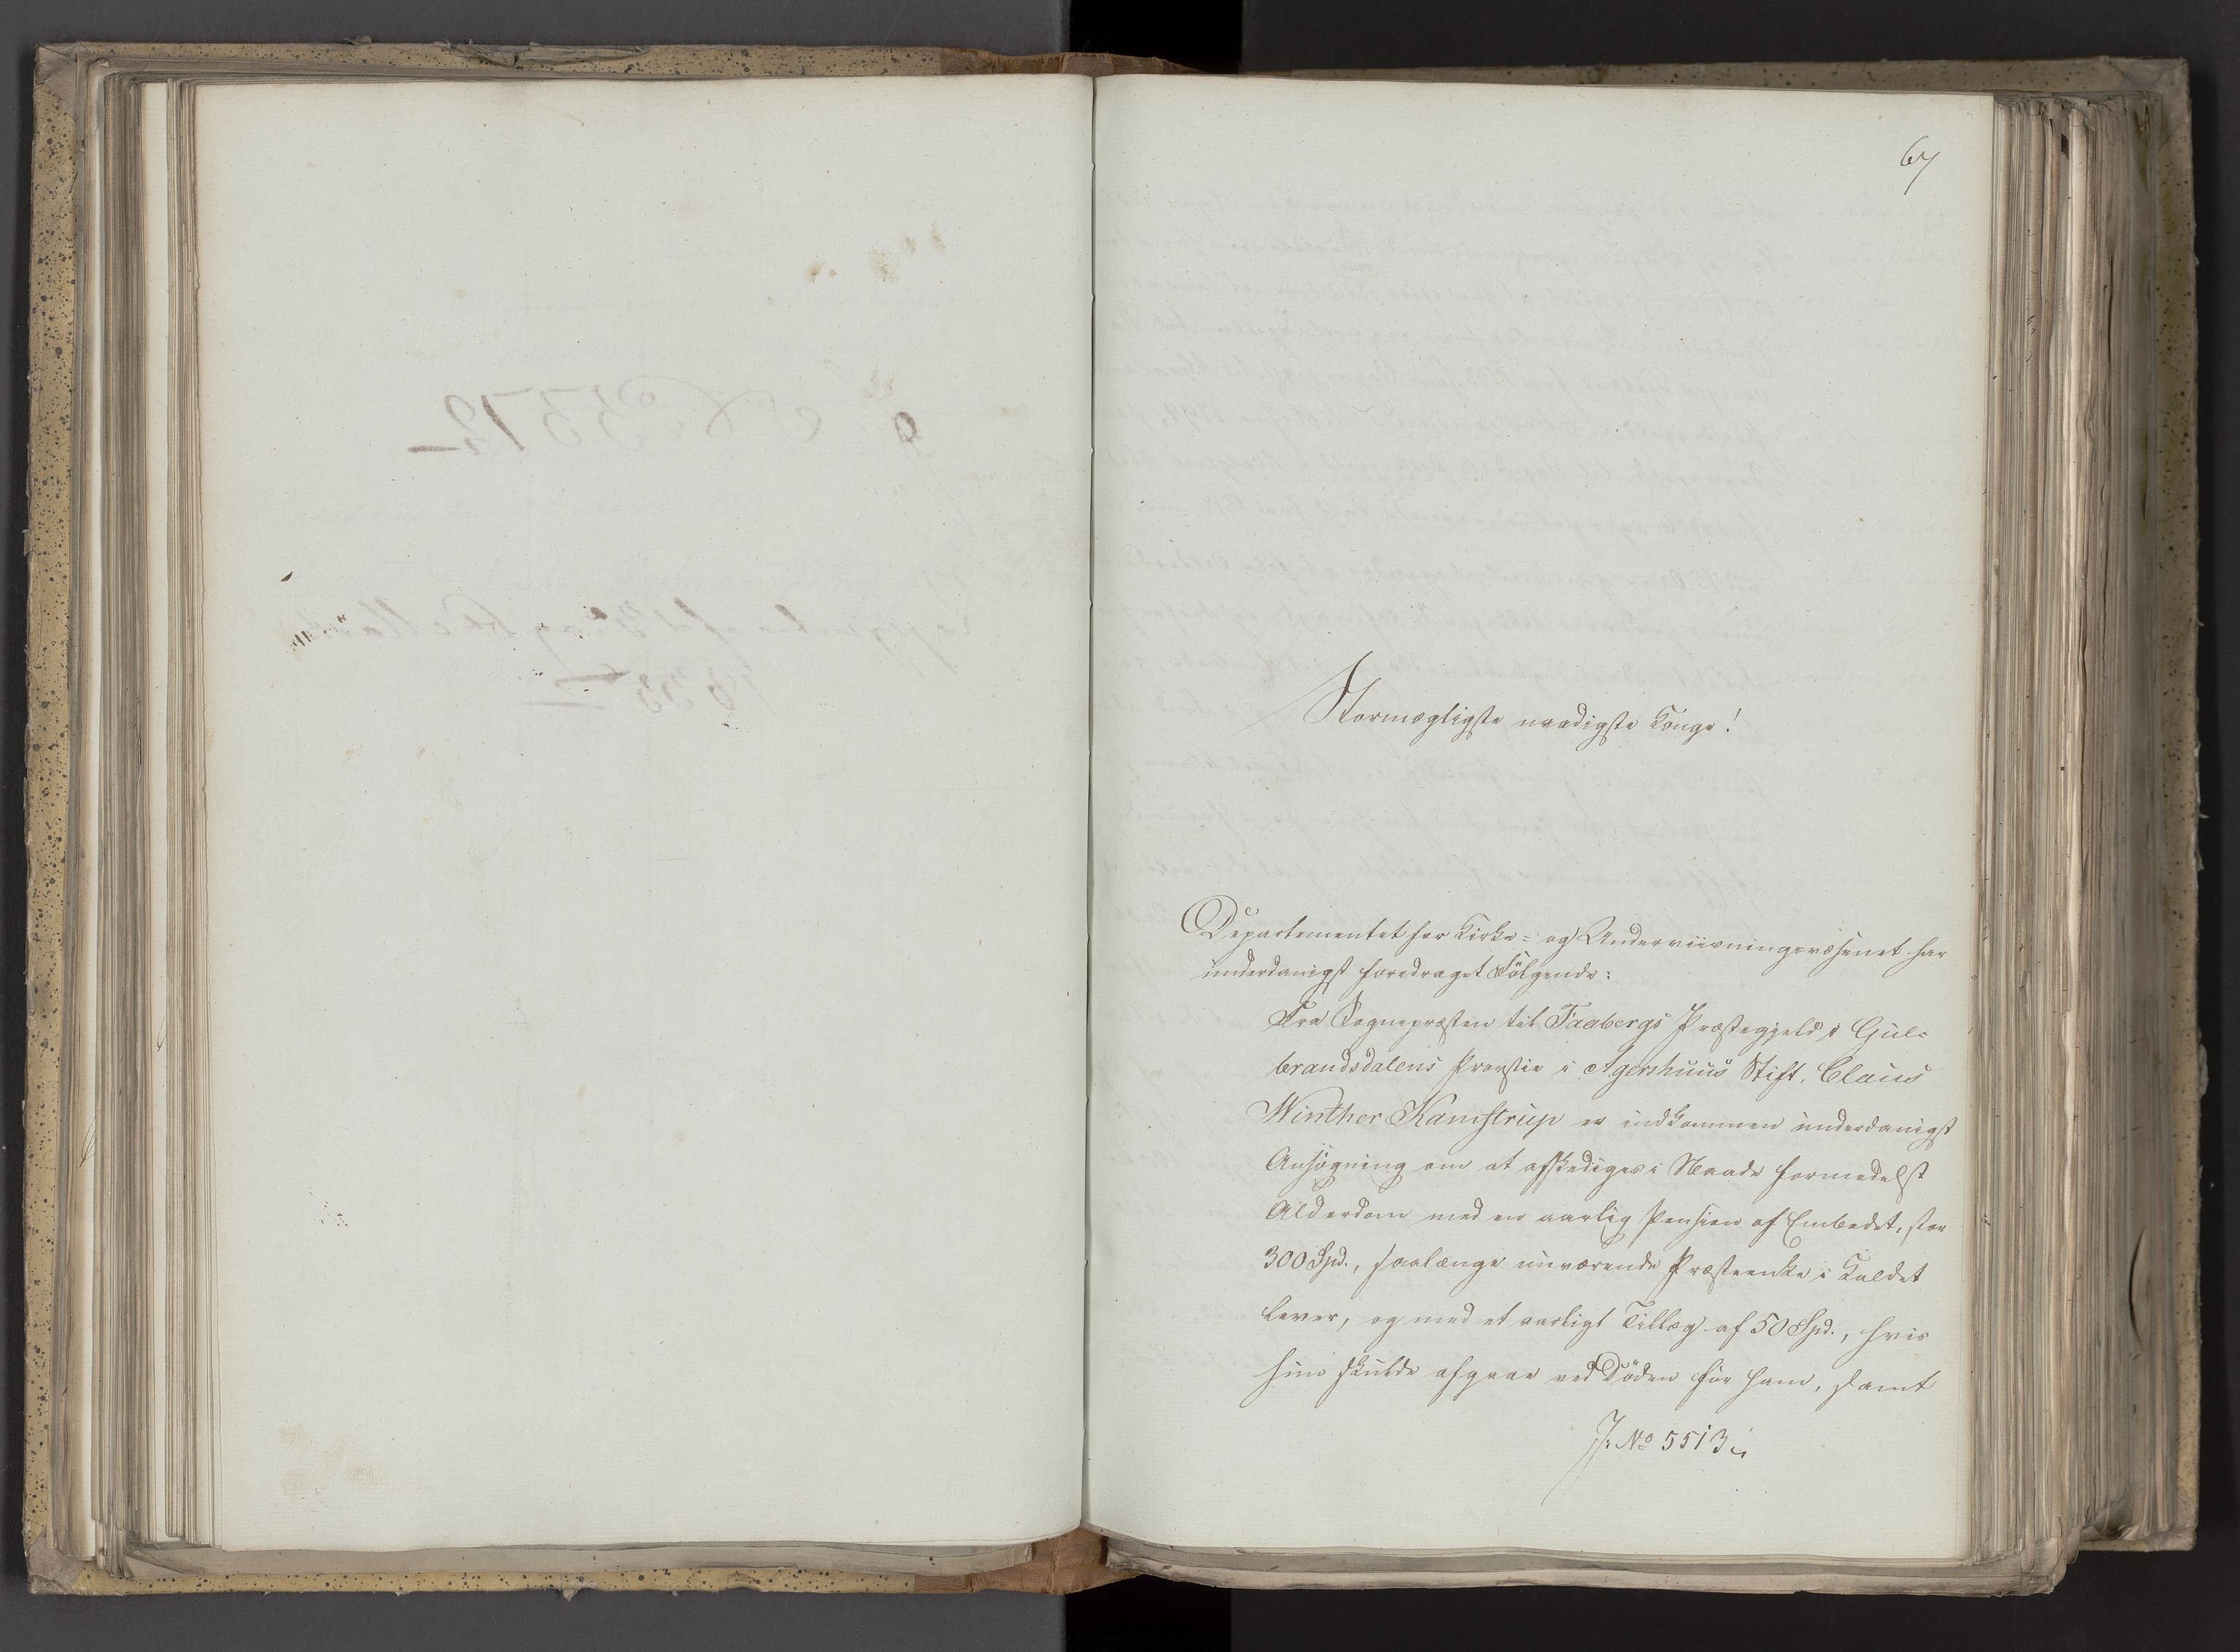 67
Stormægtigste naadigste Konge!
Departementet for Kirke- og Underviisningsvæsenet har
underdanigst foredraget Følgende:
Fra Sognepræsten til Faabergs Præstegjeld i Gul-
brandsdalens Provstie i Agershuus Stift, Claus
Winther Kamstrup er indkommen underdanigst
Ansøgning om at afskediges i Naade formedelst
Alderdom med en aarlig Pension af Embedet, stor
300 Spd., saalænge nuværende Præsteenke i Kaldet
lever, og med et aarligt Tillæg af 50 Spd., hvis
hun skulde afgaae ved Døden før ham, samt
J: No 5513